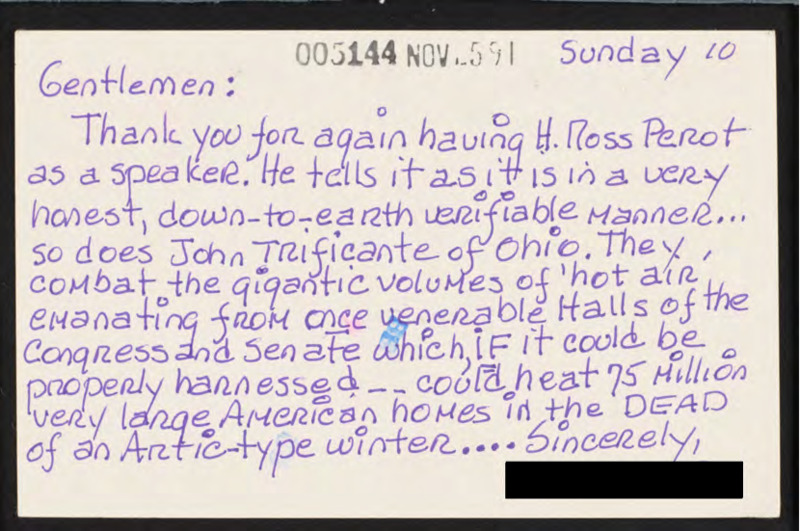 005144 NOV.591 Sunday 10
Gentlemen:
Thank you for again having H. Ross Perot
as a speaker. He tells it as it is in a very
honest, down-to-earth verifiable manner...
so does John Trificante of Ohio. They,
combat the gigantic volumes of 'hot air,
emanating from once venerable Halls of the
Congress and Senate which, if it could be
properly harnessed -- could heat 75 Million
very large American homes in the DEAD
of an Artic-type winter.... Sincerely,